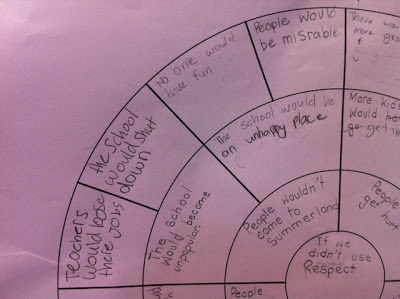 People would
be misrable
There wa
more
No one would
have fun
the school
would shut
down
Teachers
would loose
there jobs
The school would be
an unhappy place
More kids
would
go get
The School
would become
unpopular
People wouldn't
come to
Summerland
People
get hur
If we
didn't use
Respect
People